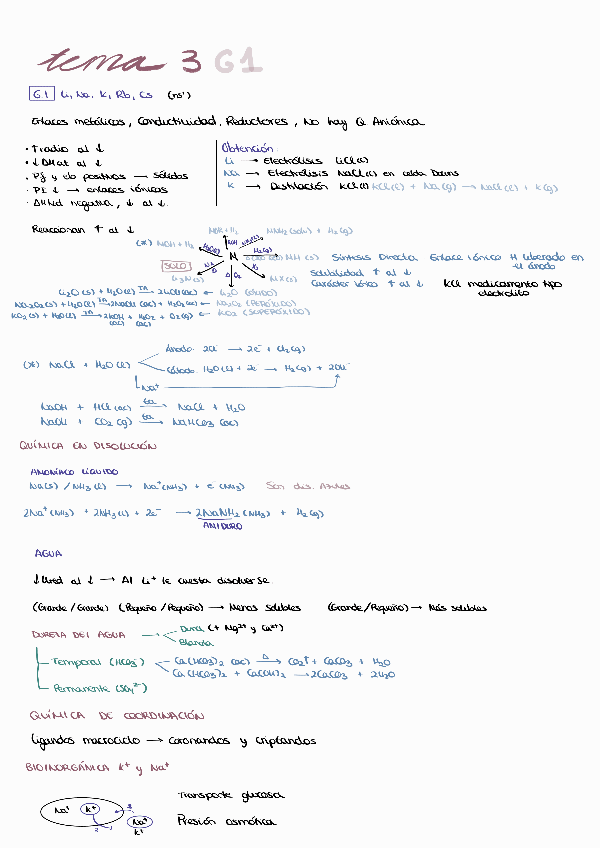 tema 3 G1
G1 Li, Na, K, Rb, Cs (ns¹)
Enlaces metálicos, Conductividad, Reductores, No hay Q Aniónica
· ↑ radio al ↓
· ↓ΔHat al ↓
· Pf y eb positivos → Sólidos
· PE ↓ → enlaces iónicos
· ΔHhid negativa, ↓ al ↓
Obtención:
Li → Electrólisis LiCl(l)
Na → Electrólisis NaCl(l) en celda Downs
K → Destilación KCl(l) KCl(l) + Na(g) → NaCl(l) + K(g)
Reaccionan ↑ al ↓
MNH2 (solv) + H2(g)
(*) MOH + H2
M
SOLO
Li3N(s)
MX(s)
MH(s) Síntesis Directa. Enlace iónico H liberado en el ánodo
Solubilidad ↑ al ↓
Carácter iónico ↑ al ↓
KCl medicamento tipo electrolito
Li2O(s) + H2O(l) → 2LiOH(ac) ← Li2O (ÓXIDO)
Na2O2(s) + H2O(l) → 2NaOH(ac) + H2O2(ac) ← Na2O2 (PERÓXIDO)
KO2(s) + H2O(l) → 2KOH (ac) + H2O2 (ac) + O2(g) ← KO2 (SUPERÓXIDO)
(*) NaCl + H2O(l)
Ánodo: 2Cl⁻ → 2e⁻ + Cl2(g)
Cátodo: H2O(l) + 2e⁻ → H2(g) + 2OH⁻
Na⁺
NaOH + HCl(ac) → NaCl + H2O
NaOH + CO2(g) → NaHCO3(ac)
QUÍMICA EN DISOLUCIÓN
AMONÍACO LÍQUIDO
Na(s) / NH3(l) → Na⁺(NH3) + e(NH3) Son dis. Azules
2Na⁺(NH3) + 2NH3(l) + 2e⁻ → 2NaNH2(NH3) + H2(g)
AMIDURO
AGUA
↓Ured al ↓ → Al Li⁺ le cuesta disolverse.
(Grande/Grande) (Pequeño/Pequeño) → Menos solubles (Grande/Pequeño) → Más solubles
DUREZA DEL AGUA
Dura (+ Mg²⁺ y Ca²⁺)
Blanda
Temporal (HCO3⁻)
Ca(HCO3)2 (ac) →Δ CO2↑ + CaCO3 + H2O
Ca(HCO3)2 + Ca(OH)2 → 2CaCO3 + 2H2O
Permanente (SO4²⁻)
QUÍMICA DE COORDINACIÓN
Ligandos macrociclo → coronandos y criptandos
BIOINORGÁNICA K⁺ y Na⁺
Transporte glucosa
Na⁺ K⁺ 3 Na⁺
2 K⁺
Presión osmótica